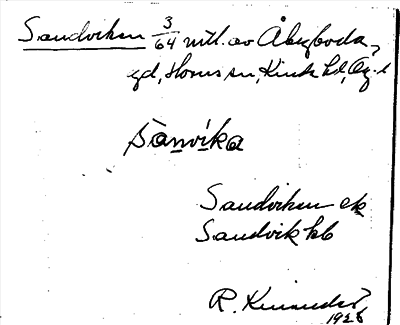 Sandviken 3/64 mtl. av Åbyboda,
gd, Horns sn, Kinda hd, Ög. l
sànvíka
Sandviken ek
Sandvik kb
R.
1928